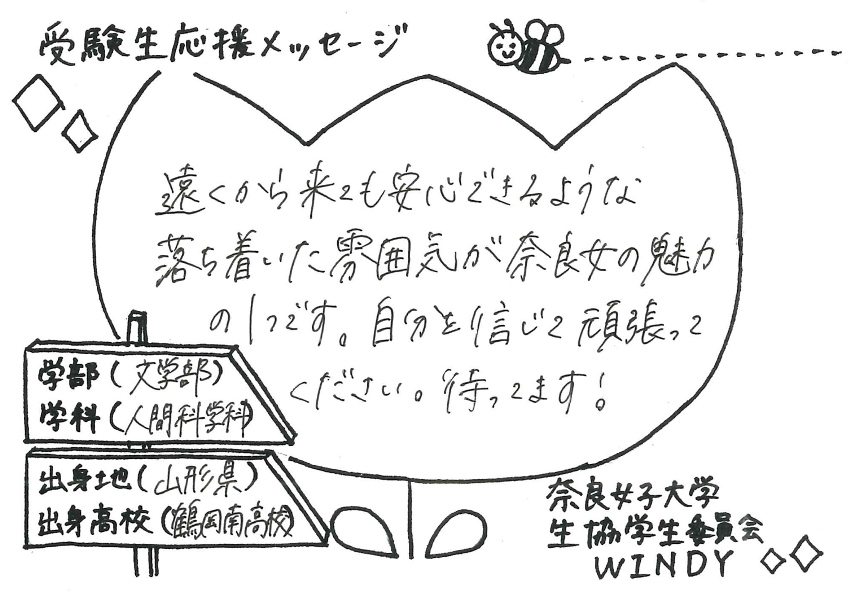 受験生応援メッセージ
遠くから来ても安心できるような
落ち着いた雰囲気が奈良女の魅力
の1つです。自分を信じて頑張って
ください。待ってます!
学部(文学部)
学科(人間科学科)
出身地(山形県)
出身高校(鶴岡南高校)
奈良女子大学
生協学生委員会
WINDY